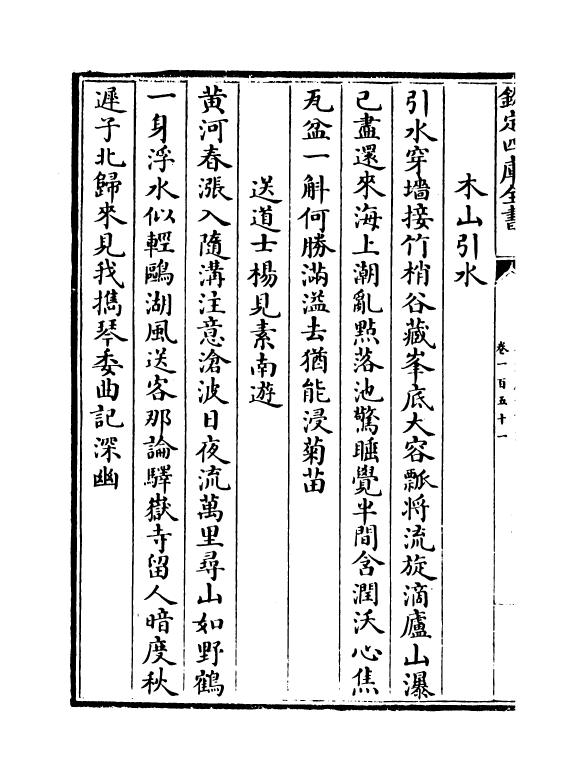 欽定四庫全書
卷一百五十一
木山引水
引水穿墻接竹梢谷藏峯底大容瓢将流旋滴廬山瀑
已盡還來海上潮亂點落池驚睡覺半間含潤沃心焦
瓦盆一斛何勝滿溢去猶能浸菊苗
送道士楊見素南遊
黄河春漲入隨溝注意滄波日夜流萬里尋山如野鶴
一身浮水似輕鷗湖風送客那論驛嶽寺留人暗度秋
遲子北歸來見我携琴委曲記深幽